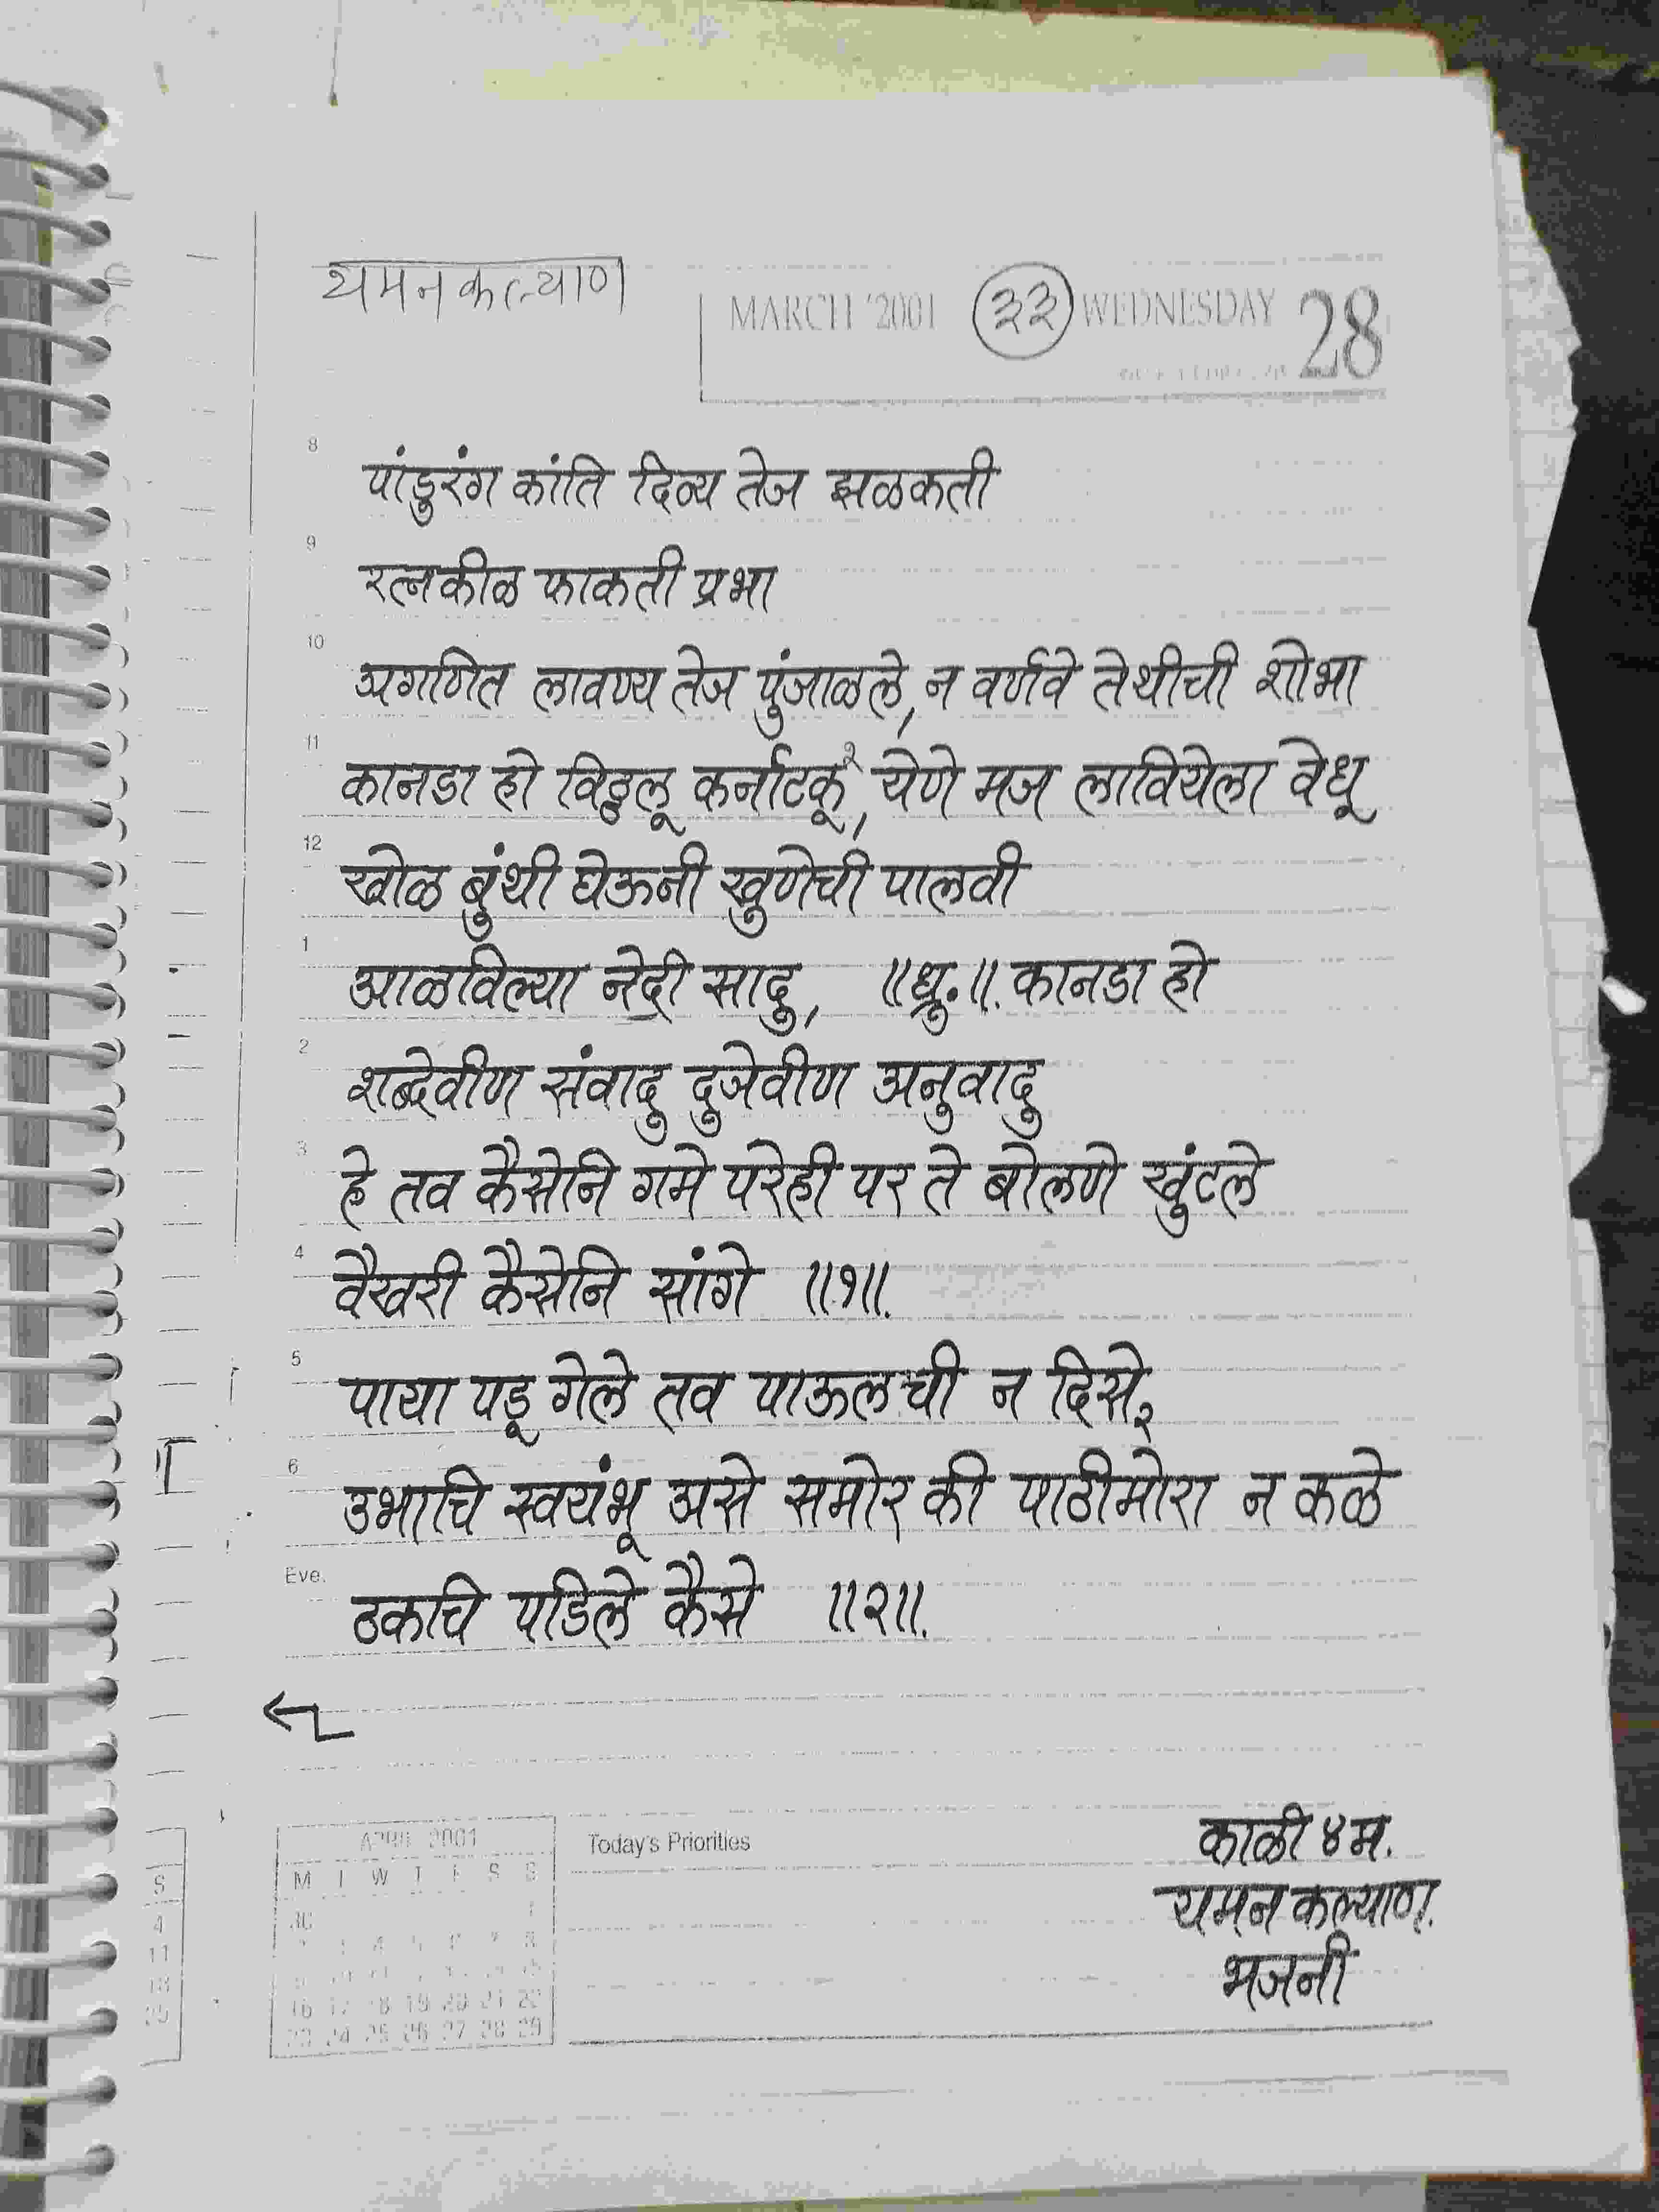 यमनकल्याण
MARCH '2001 ३३ WEDNESDAY 28
8
पांडुरंग कांति दिव्य तेज झळकती
9
रत्नकीळ फाकती प्रभा
10
अगणित लावण्य तेज पुंजाळले, न वर्णवे तेथीची शोभा
11
कानडा हो विठ्ठलू कर्नाटकू २, येणे मज लावियेला वेधू
12
खोळ बुंथी घेऊनी खुणेची पालवी
1
आळविल्या नेदी सादु, ॥ध्रु.॥. कानडा हो
2
शब्देवीण संवादु दुजेवीण अनुवादु
3
हे तव कैसेनि गमे परेही पर ते बोलणे खुंटले
4
वैखरी कैसेनि सांगे ॥१॥.
5
पाया पडू गेले तव पाऊलची न दिसे२
6
उभाचि स्वयंभू असे समोर की पाठीमोरा न कळे
Eve.
ठकाचि पडिले कैसे ॥२॥.
APRIL 2001
M T W T F S S
30 1
16 17 18 19 20 21 22
23 24 25 26 27 28 29
Today's Priorities
काळी ४ म.
यमन कल्याण.
भजनी
S
4
11
18
25